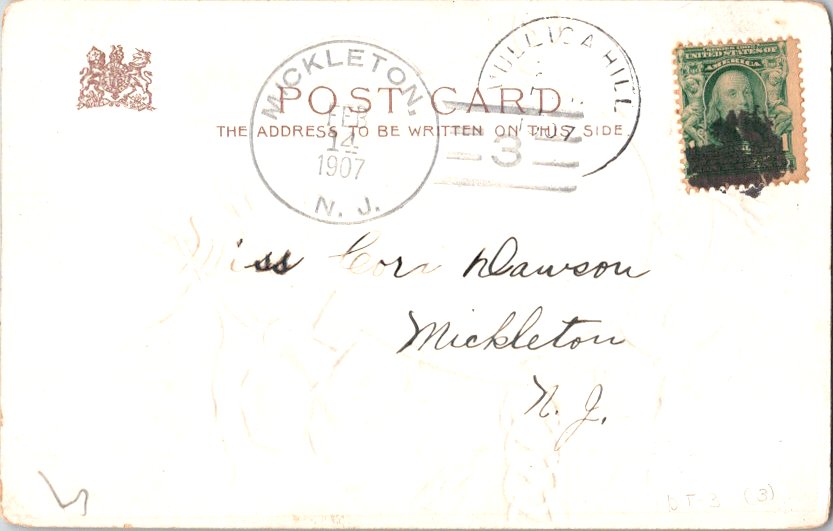 MICKLETON.
FEB
14
1907
N. J.
MULLICA HILL
3
UNITED STATES OF
AMERICA
1
POST CARD
THE ADDRESS TO BE WRITTEN ON THIS SIDE.
iss Cora Dawson
Mickleton
N. J.
DT-3 (3)